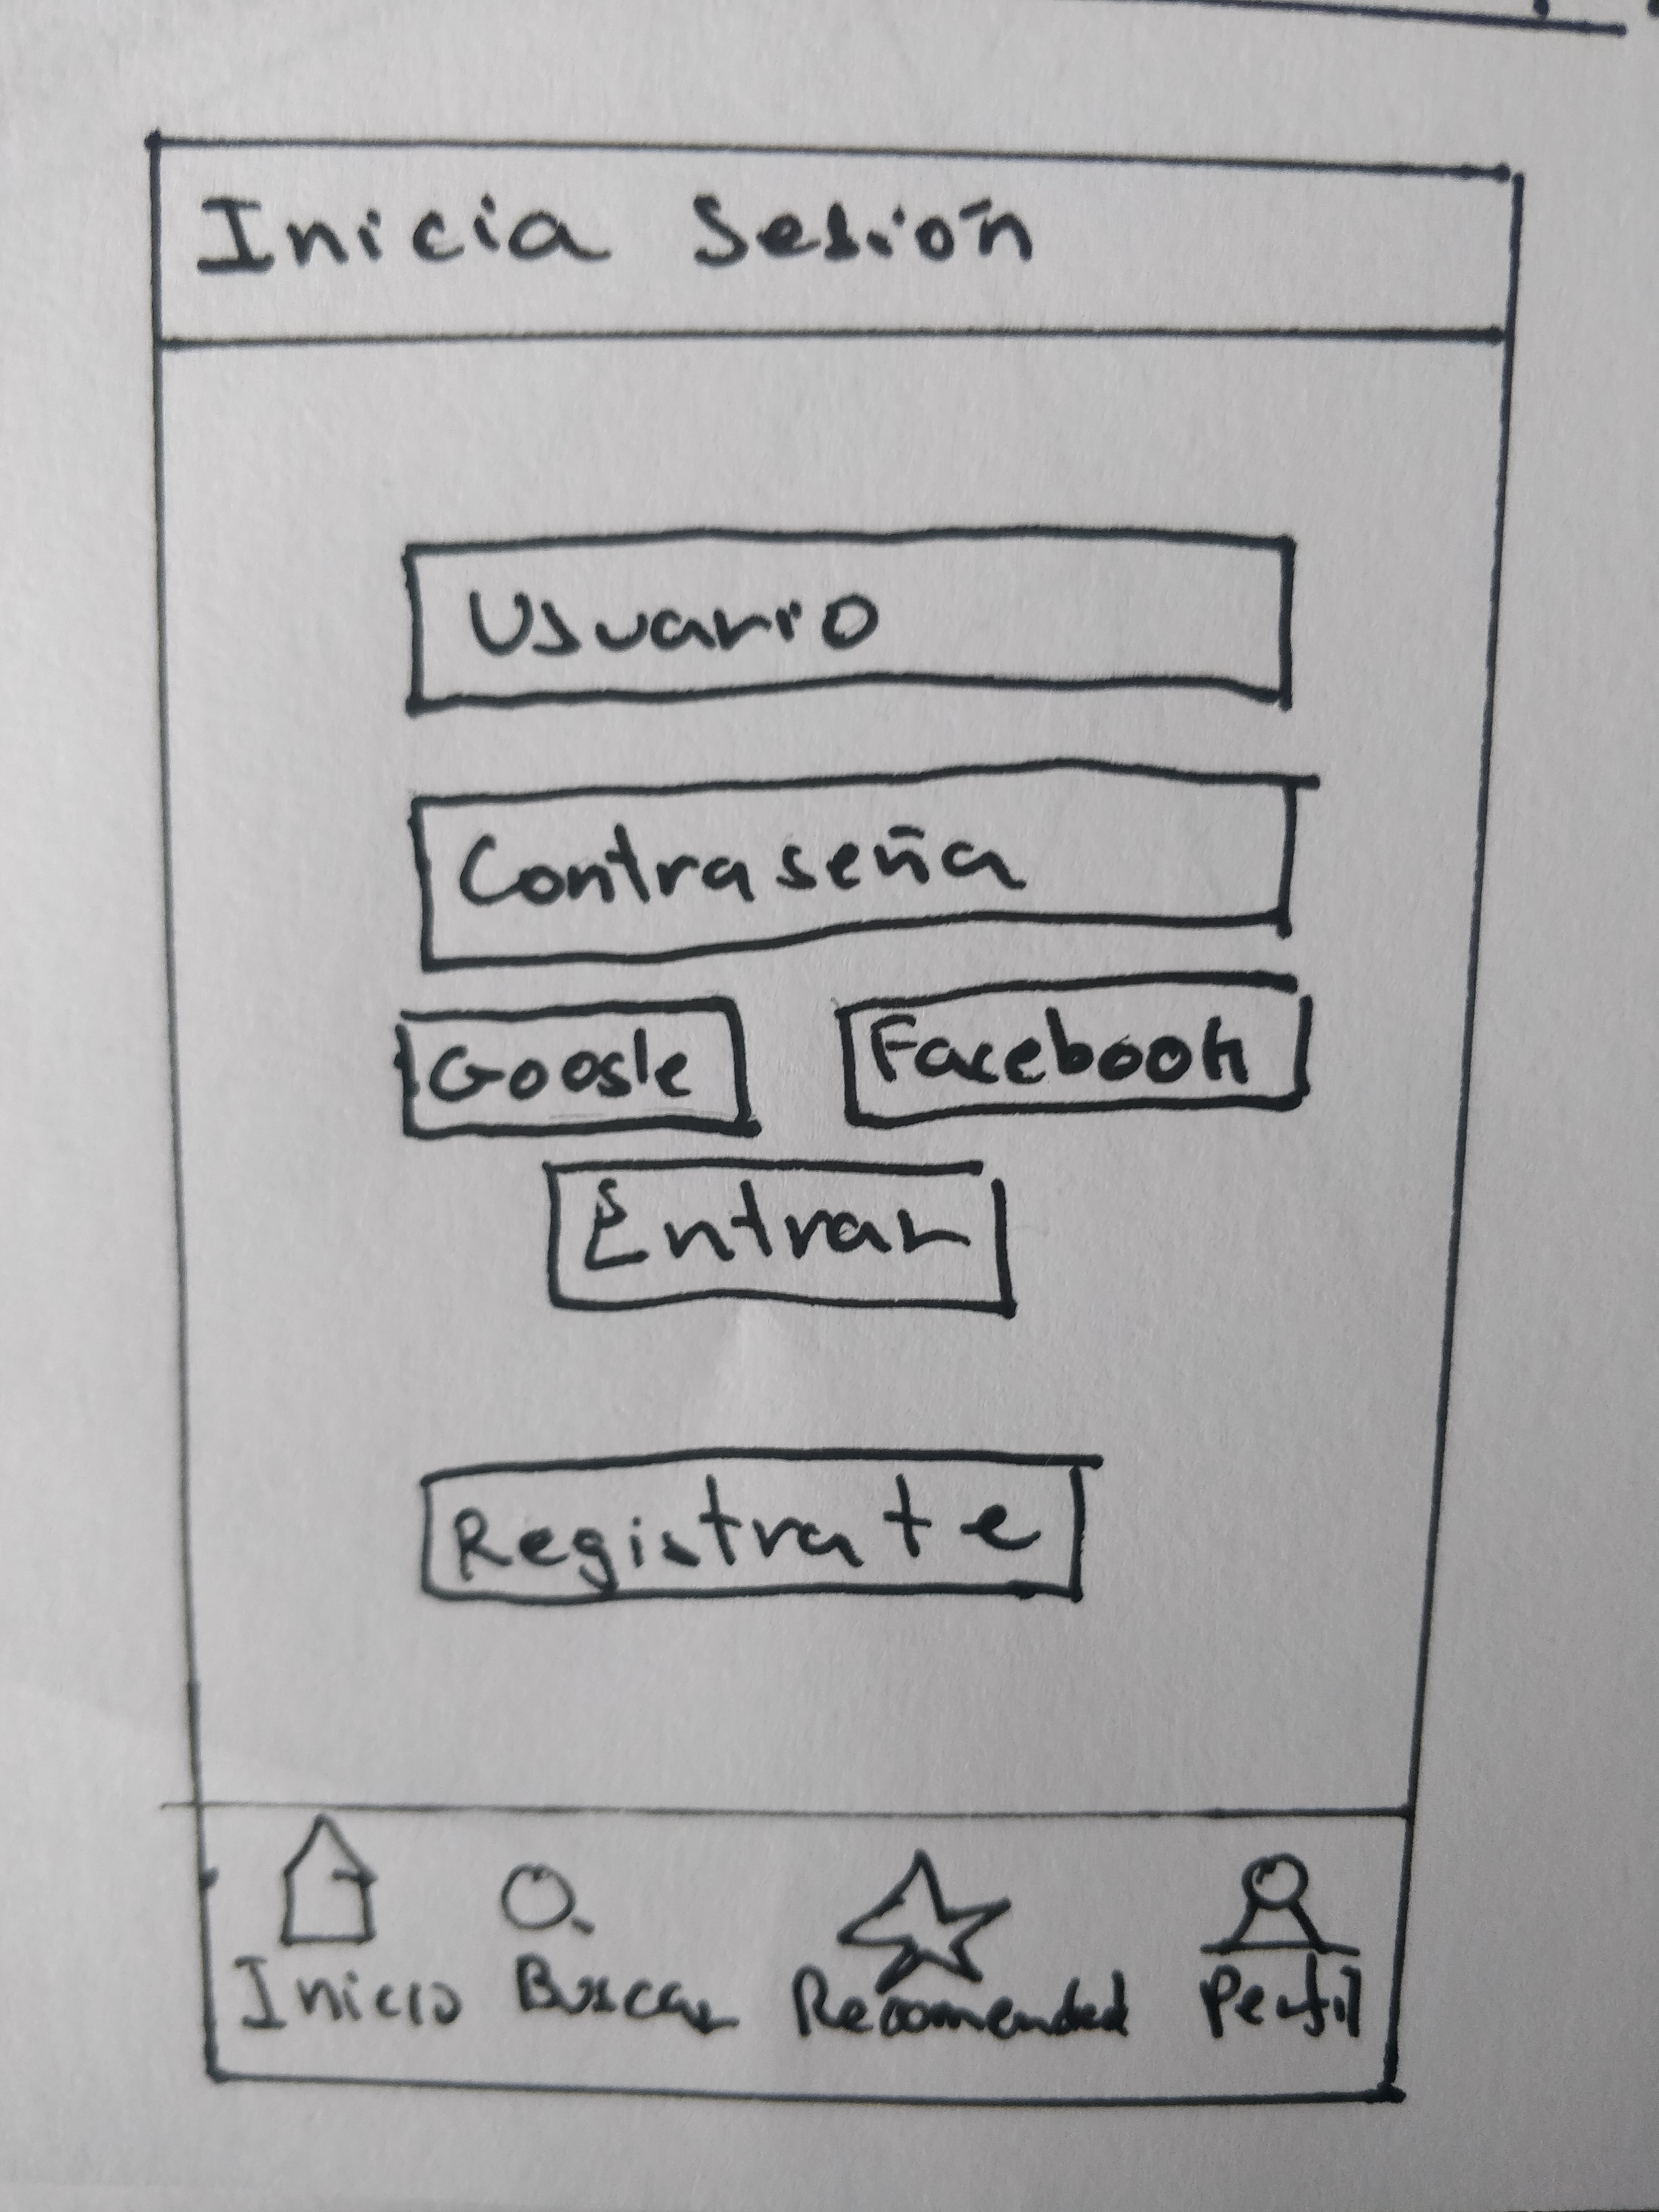 Inicia Sesión
Usuario
Contraseña
Google Facebook
Entrar
Registrate
Inicio Buscar Recomended Perfil